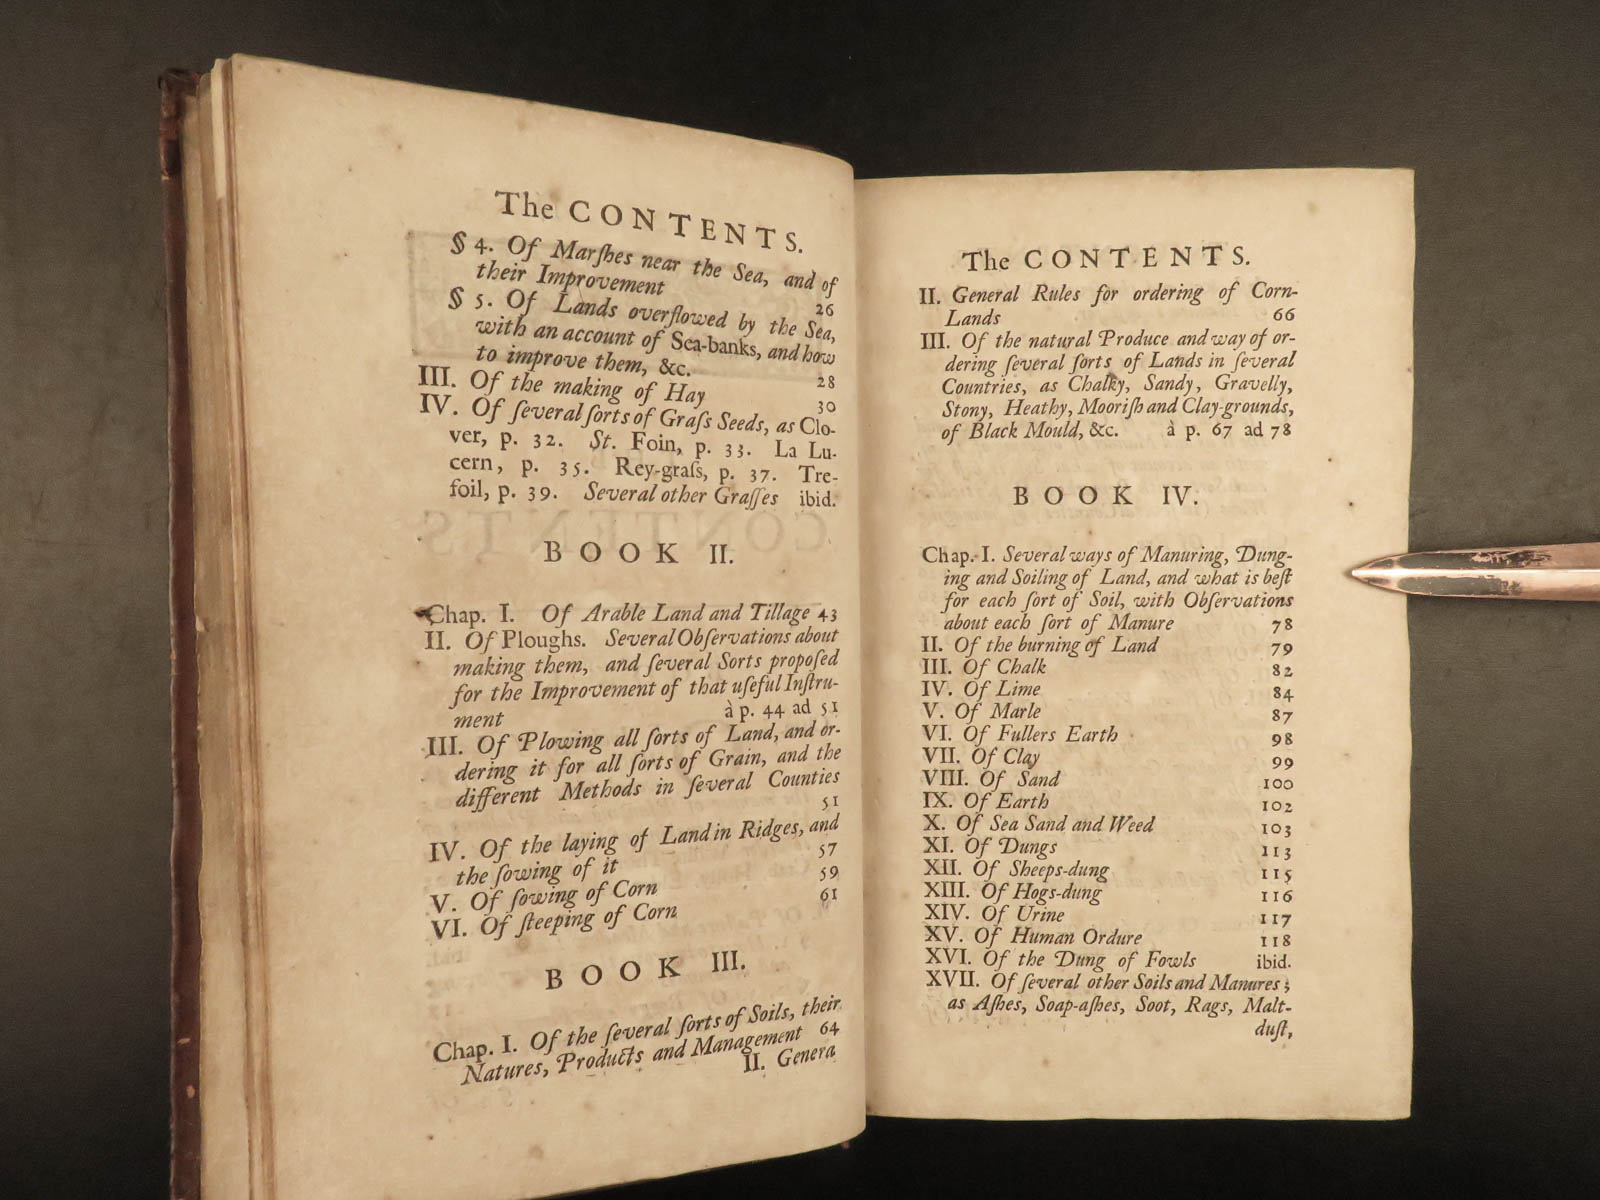 The CONTENTS.
§ 4. Of Marſhes near the Sea, and of
their Improvement 26
§ 5. Of Lands overflowed by the Sea,
with an account of Sea-banks, and how
to improve them, &c. 28
III. Of the making of Hay 30
IV. Of ſeveral ſorts of Graſs Seeds, as Clo-
ver, p. 32. St. Foin, p. 33. La Lu-
cern, p. 35. Rey-graſs, p. 37. Tre-
foil, p. 39. Several other Graſſes ibid.
BOOK II.
Chap. I. Of Arable Land and Tillage 43
II. Of Ploughs. Several Obſervations about
making them, and ſeveral Sorts propoſed
for the Improvement of that uſeful Inſtru-
ment à p. 44 ad 51
III. Of Plowing all ſorts of Land, and or-
dering it for all ſorts of Grain, and the
different Methods in ſeveral Counties
51
IV. Of the laying of Land in Ridges, and
the ſowing of it 57
V. Of ſowing of Corn 59
VI. Of ſteeping of Corn 61
BOOK III.
Chap. I. Of the ſeveral ſorts of Soils, their
Natures, Products and Management 64
II. Genera
The CONTENTS.
II. General Rules for ordering of Corn-
Lands 66
III. Of the natural Produce and way of or-
dering ſeveral ſorts of Lands in ſeveral
Countries, as Chalky, Sandy, Gravelly,
Stony, Heathy, Mooriſh and Clay-grounds,
of Black Mould, &c. à p. 67 ad 78
BOOK IV.
Chap. I. Several ways of Manuring, Dung-
ing and Soiling of Land, and what is beſt
for each ſort of Soil, with Obſervations
about each ſort of Manure 78
II. Of the burning of Land 79
III. Of Chalk 82
IV. Of Lime 84
V. Of Marle 87
VI. Of Fullers Earth 98
VII. Of Clay 99
VIII. Of Sand 100
IX. Of Earth 102
X. Of Sea Sand and Weed 103
XI. Of Dungs 113
XII. Of Sheeps-dung 115
XIII. Of Hogs-dung 116
XIV. Of Urine 117
XV. Of Human Ordure 118
XVI. Of the Dung of Fowls ibid.
XVII. Of ſeveral other Soils and Manures;
as Aſhes, Soap-aſhes, Soot, Rags, Malt-
duſt,